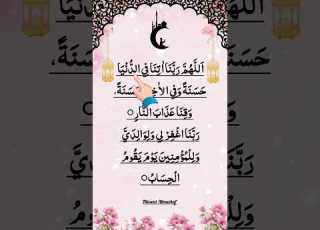 اَللّٰهُمَّ رَبَّنَا اٰتِنَا فِي الدُّنْيَا
حَسَنَةً وَّفِي الْاٰخِرَةِ حَسَنَةً،
وَقِنَا عَذَابَ النَّارِ○
رَبَّنَا اغْفِرْ لِي وَلِوَالِدَيَّ
وَلِلْمُؤْمِنِينَ يَوْمَ يَقُومُ
الْحِسَابُ○